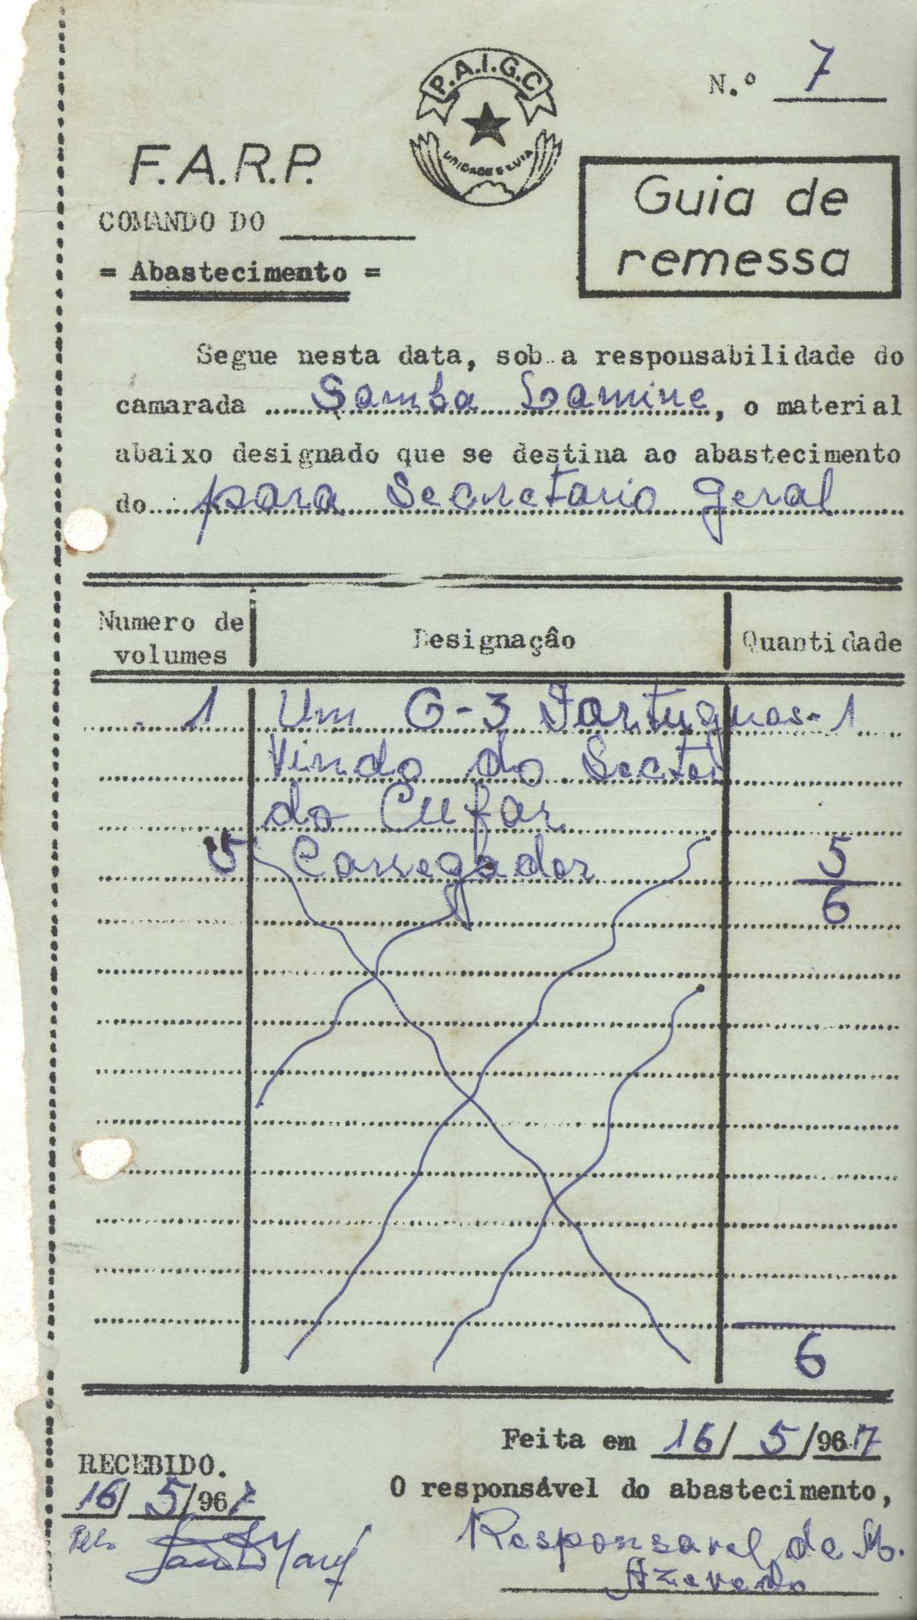 P.A.I.G.C
UNIDADE E LUTA
N.º 7
F.A.R.P.
COMANDO DO
= Abastecimento =
Guia de
remessa
Segue nesta data, sob a responsabilidade do
camarada Samba Lamine, o material
abaixo designado que se destina ao abastecimento
do para Secretario geral
Numero de volumes Designação Quantidade
1 Um G-3 Portugues - 1
Vindo do Sector
do Cufar
5 Carregador 5
6
6
Feita em 16/5/967
RECEBIDO.
16/5/967
O responsável do abastecimento,
Responsavel de M.
Azevedo